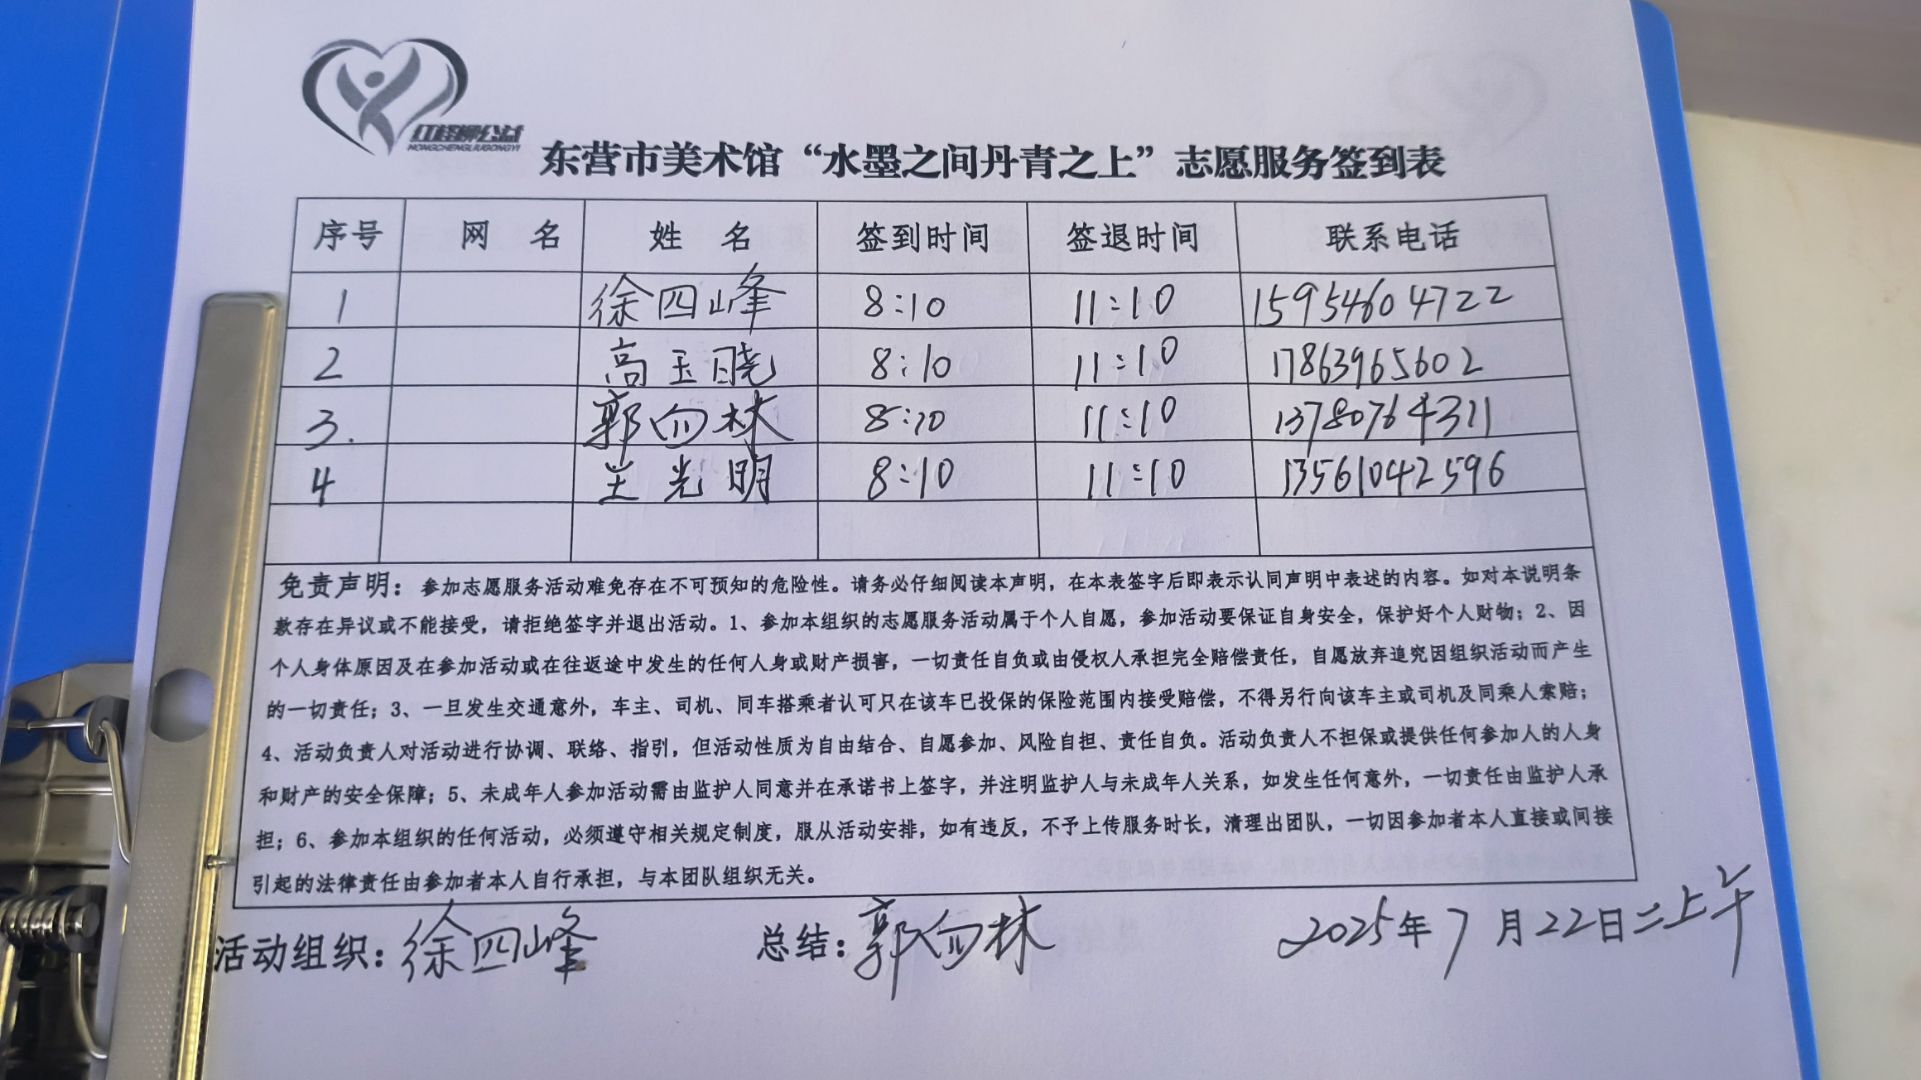 红柽柳公益
HONGCHENGLIUGONGYI
东营市美术馆“水墨之间丹青之上”志愿服务签到表
序号 网 名 姓 名 签到时间 签退时间 联系电话
1 徐四峰 8:10 11:10 15954604722
2 高玉晓 8:10 11:10 17863965602
3. 郭向林 8:10 11:10 13780764311
4 王光明 8:10 11:10 13561042596
免责声明：参加志愿服务活动难免存在不可预知的危险性。请务必仔细阅读本声明，在本表签字后即表示认同声明中表述的内容。如对本说明条
款存在异议或不能接受，请拒绝签字并退出活动。1、参加本组织的志愿服务活动属于个人自愿，参加活动要保证自身安全，保护好个人财物；2、因
个人身体原因及在参加活动或在往返途中发生的任何人身或财产损害，一切责任自负或由侵权人承担完全赔偿责任，自愿放弃追究因组织活动而产生
的一切责任；3、一旦发生交通意外，车主、司机、同车搭乘者认可只在该车已投保的保险范围内接受赔偿，不得另行向该车主或司机及同乘人索赔；
4、活动负责人对活动进行协调、联络、指引，但活动性质为自由结合、自愿参加、风险自担、责任自负。活动负责人不担保或提供任何参加人的人身
和财产的安全保障；5、未成年人参加活动需由监护人同意并在承诺书上签字，并注明监护人与未成年人关系，如发生任何意外，一切责任由监护人承
担；6、参加本组织的任何活动，必须遵守相关规定制度，服从活动安排，如有违反，不予上传服务时长，清理出团队，一切因参加者本人直接或间接
引起的法律责任由参加者本人自行承担，与本团队组织无关。
活动组织：徐四峰 总结：郭向林 2025年7月22日二上午